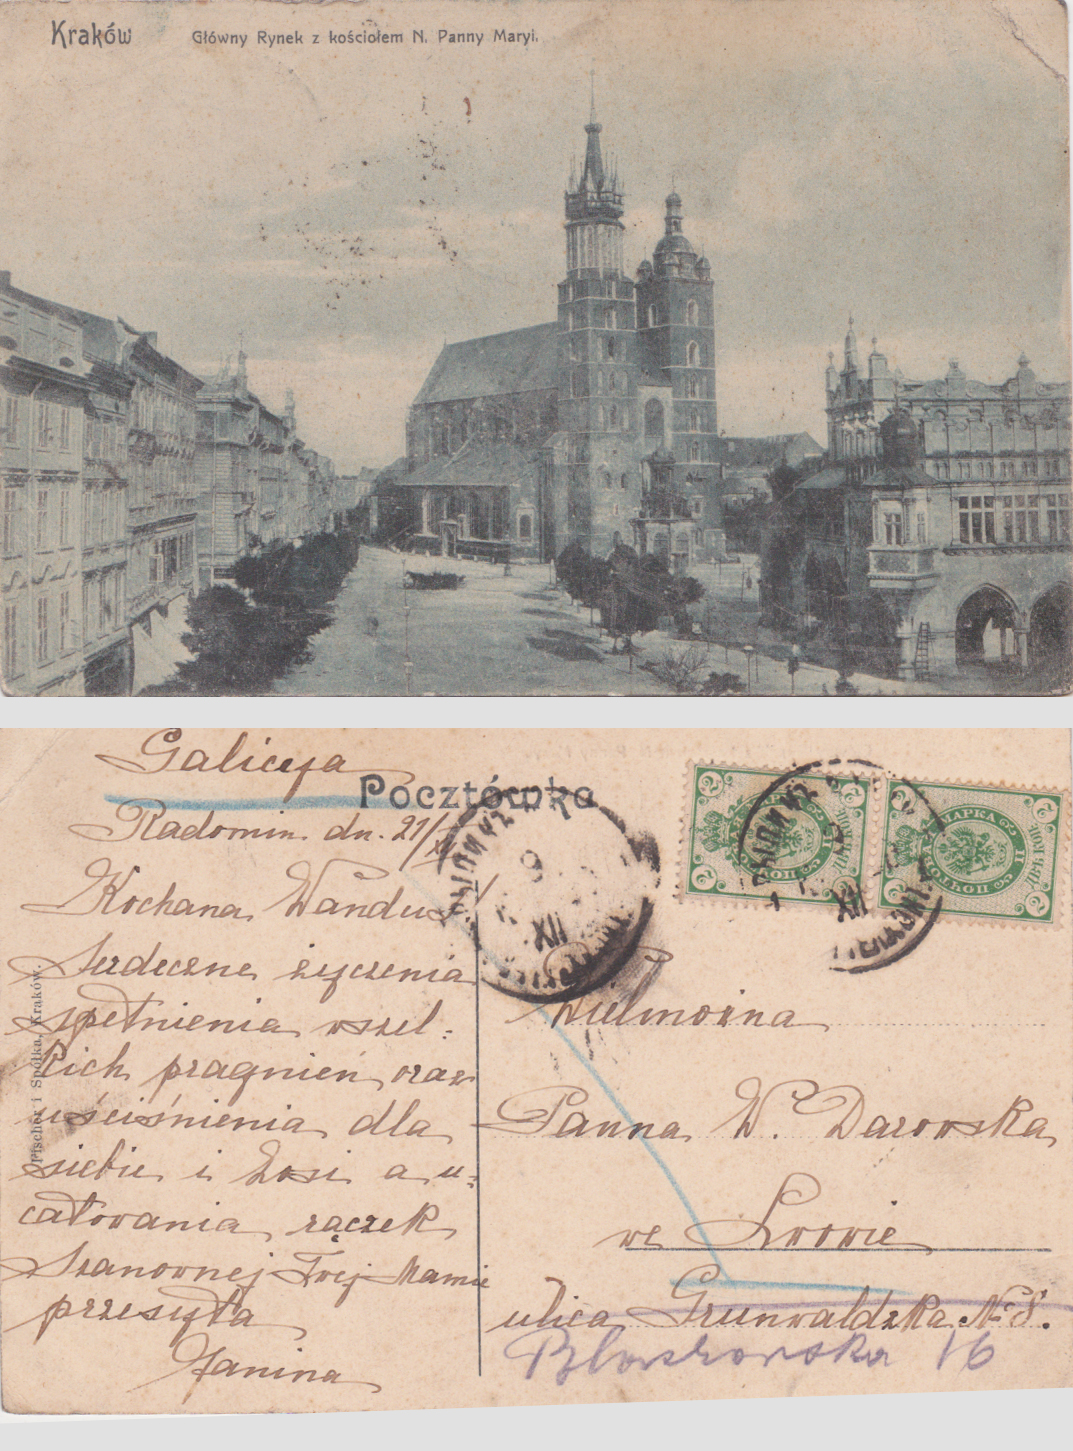 Kraków
Główny Rynek z kościołem N. Panny Maryi.
Galicya
Pocztówka
Radomin dn. 21/X
Kochana Wandus
Serdeczne życzenia
spełnienia wszel-
kich pragnień, oraz
uściśnienia dla
siebie i Zosi a u-
całowania rączek
Szanownej Twej Mamie
przesyła
Janina
Pischer i Spółka, Kraków.
2 КОП
МАРКА
ПОЧТОВАЯ
2 КОП
МАРКА
ПОЧТОВАЯ
XII
XII
Wielmożna
Panna W. Darowska
we Lwowie
ulica Grunwaldzka № 8.
16